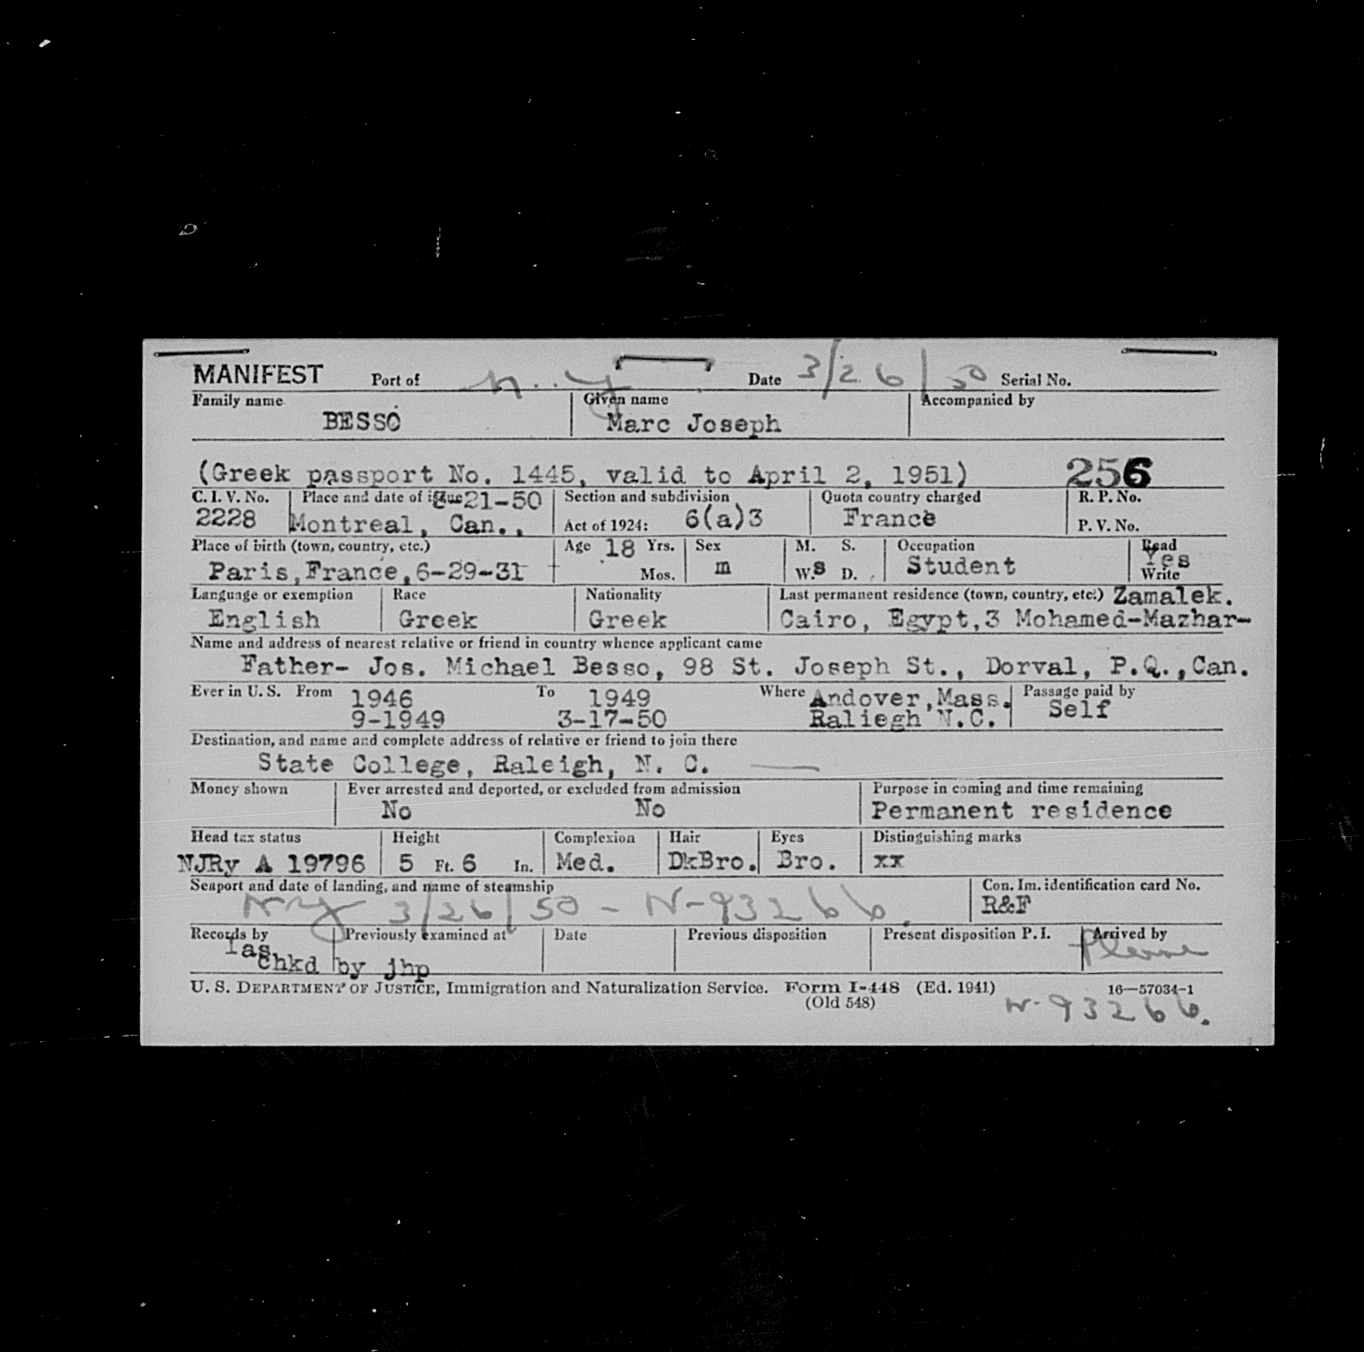 MANIFEST Port of N. Y. Date 3/26/50 Serial No.
Family name Given name Accompanied by
BESSO Marc Joseph
(Greek passport No. 1445, valid to April 2, 1951) 256
C. I. V. No. Place and date of 21-50 Section and subdivision Quota country charged R. P. No.
2228 Montreal, Can., Act of 1924: 6(a)3 France P. V. No.
Place of birth (town, country, etc.) Age 18 Yrs. Sex M. S. Occupation Read
Paris,France,6-29-31 Mos. m W.s D. Student Yes Write
Language or exemption Race Nationality Last permanent residence (town, country, etc.) Zamalek.
English Greek Greek Cairo, Egypt,3 Mohamed-Mazhar-
Name and address of nearest relative or friend in country whence applicant came
Father- Jos. Michael Besso, 98 St. Joseph St., Dorval, P.Q.,Can.
Ever in U. S. From 1946 To 1949 Where Andover,Mass. Passage paid by
9-1949 3-17-50 Raliegh N.C. Self
Destination, and name and complete address of relative or friend to join there
State College, Raleigh, N. C.
Money shown Ever arrested and deported, or excluded from admission Purpose in coming and time remaining
No No Permanent residence
Head tax status Height Complexion Hair Eyes Distinguishing marks
NJRy A 19796 5 Ft. 6 In. Med. DkBro. Bro. xx
Seaport and date of landing, and name of steamship Con. Im. identification card No.
NY 3/26/50 - N-93266. R&F
Records by Previously examined at Date Previous disposition Present disposition P. I. Arrived by
ias chkd by jhp Plane
U. S. DEPARTMENT OF JUSTICE, Immigration and Naturalization Service. Form I-448 (Ed. 1941) 16—57034-1
(Old 548) N-93266.